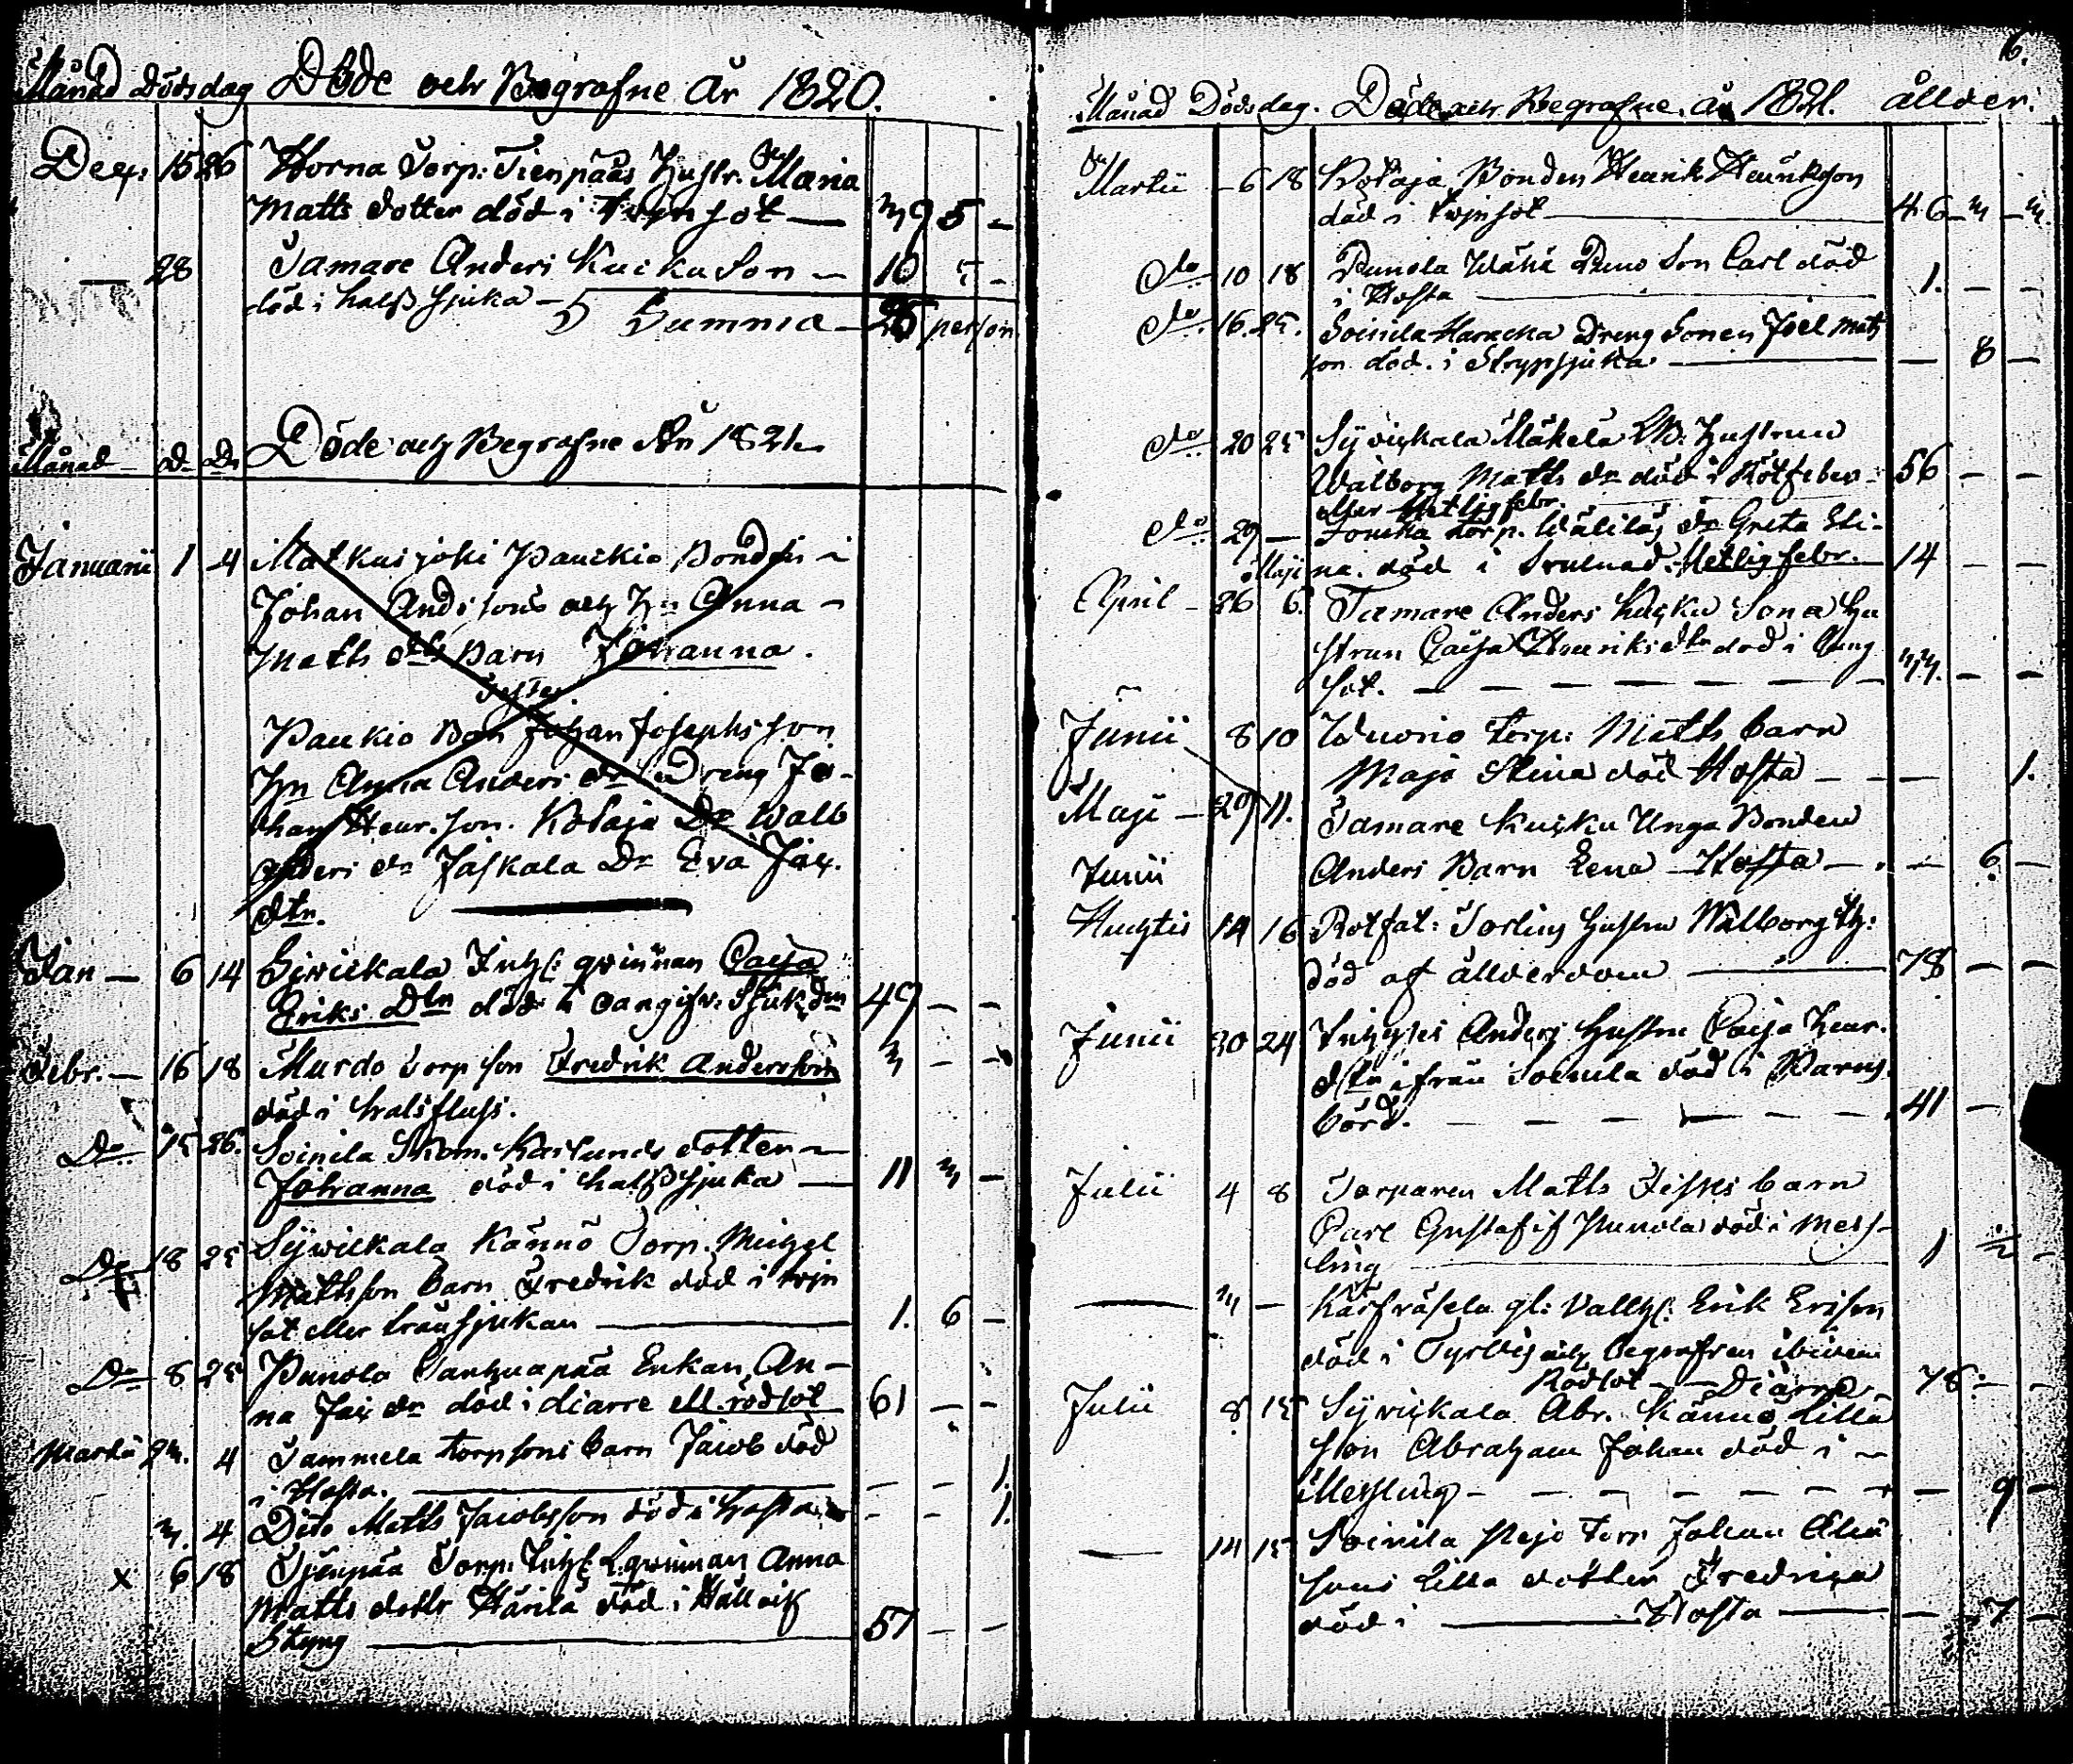 Månad Dödsdag Döde och Begrafne År 1820.
Dec: 15 26 Horna Torp: Tienpääs Hustr. Maria
Matts dotter död i 39 5 -
- 28 Tamare Anders Kuicku Son - 10 5 -
död i halssjuka - Summa - 25 person
Månad - D- Dr Döde och Begrafne År 1821
Januarii 1 4 Matkusjoki Pauckio Bondens
Johan Andssons och Hu Anna -
Matts dtr Barn Johanna.
Paukio Bon Johan Josephsson
Hn Anna Anders dr Dreng Jo-
han Henr. son. Kotaja Dr Walb
Anders dr Jaskala Dr Eva Jac.
dtr.
Jan - 6 14 Sywickala Inhs: qwinnan Caisa
Eriks Dtr död 49 - -
Febr. - 16 18 Murdo Torp son Fredrik Andersson 3 - -
död i halsfluss.
Do 15 26. Soinila Skom. Karlunds dotter -
Johanna död i halssjuka - 11 3 -
Do 18 25 Sywickala Kännö Torp. Michel
Mathsson barn Fredrik död i
sot eller 1. 6 -
Do 8 25 Punola Enkan An-
na Jac dr död i diarre ell. rödsot 61 - -
Martii 2 4 Tammela torpsons barn Jacob död
i Hosta. - - 1.
3. 4 Dito Matts Jacobsson död i hosta - - 1.
x 6 18 Tjenpää Torp. Inhs qwinnan Anna
Matts dottr Härilä död i Håll och
Styng 57 - -
6.
Månad Dödsdag. Döde och Begrafne. År 1821. ållder.
Martii - 6 18 Kotaja Bonden Henrik Henriksson
död i 46 - 3 - 3.
do 10 18 Punola Wähä Puno Son Carl död
i Hosta 1. - -
do. 16. 25. Soinila Haracka Dreng Sonen Joel Mats
son död. i Strypsjuka - 8 -
do 20 25 Sywickala Mäkelä Hustrun
Walborg Matts dr död i Rötfeber - 56 - -
eller Hetlig febr.
do 29 - torp. Wäliläs dr Greta Sti-
Maji na. död i Hetlig febr. 14 - -
April - 26 6. Tamare Anders Kuicku Sona Hu
strun Caisa Henriks dtr död i Lung
sot. - - - - 33. - -
Junii 8 10 Wuorio torp: Matts barn
Maja Stina död Hosta - - - 1.
Maji - 29 11. Tamare Kuicku Unga Bonden
Junii Anders Barn Lena - Hosta - . - 6 -
14 16 Rotfat: Torlins hustru Walborg
död af ållderdom 78 - -
Junii 20 24 Inhyses Anders hustru Caisa Henr.
dtr ifrån Soinila död i Barns
börd. - - - - 41 -
Julii 4 8 Torparen Matts barn
Carl Gustaf if Punola död i Mess-
ling 1 1/2 -
- 3 - Erik Ericson
död i Tyrvis och begrafven ibidem
Rödsot - Diarre - 78. - -
Julii 8 15 Sywickala Abr. Kännö Lilla
son Abraham Johan död i -
Messling - - - - - 9 -
- 14 15 Soinila Torp Johan
sons Lilla dotter Fredrica
död i Hosta - - 7 -